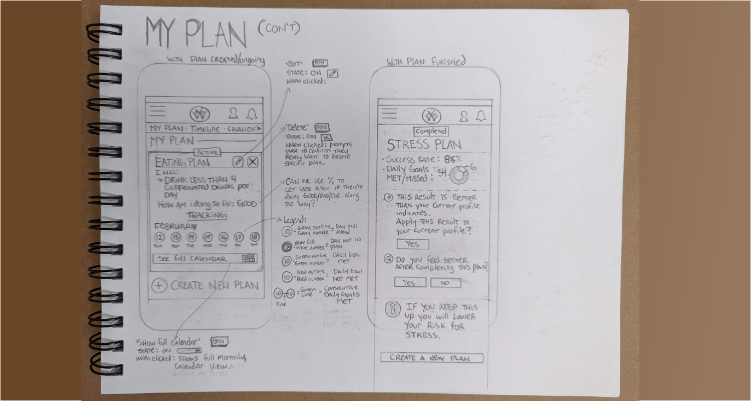 MY PLAN (CON'T)
WITH PLAN CREATED/ongoing
MY PLAN - Timeline - CHALLEN
MY PLAN
ACTIVE
EATING PLAN
I WILL:
DRINK LESS THAN 4
CAFFEINATED DRINKS PER
DAY
HOW AM I doing SO FAR: GOOD
TRACKING
FEBRUARY
12 13 14 15 16 17 18
SUN MON TUE WED THU FRI SAT
SEE FULL CALENDAR
+ CREATE NEW PLAN
"Show full calendar"
STATE: ON
when clicked: Shows full Monthly
Calendar view.
"EDIT"
STATE: ON
when clicked:
"Delete"
STATE: ON
when clicked: prompts
user to confirm they
Really want to Delete
specific plan.
CAN WE USE % TO
LET USER KNOW IF they're
doing Good/Bad/OK Along
the way?
Legend:
DAY NOT IN
PLAN
Daily Goal
MET
Daily Goal
NOT MET
Green
Line
Consecutive
Daily Goals
MET
WITH PLAN FINISHED
Completed
STRESS PLAN
- Success Rate: 85%
- Daily Goals
MET/Missed: 34 6
THIS RESULT IS BETTER
THAN your Current profile
indicates.
Apply THIS Result to
your Current profile?
Yes
Do you feel better
AFTER Completing this plan?
Yes NO
IF YOU KEEP THIS
up you will LOWER
your RISK FOR
STRESS.
CREATE A NEW PLAN